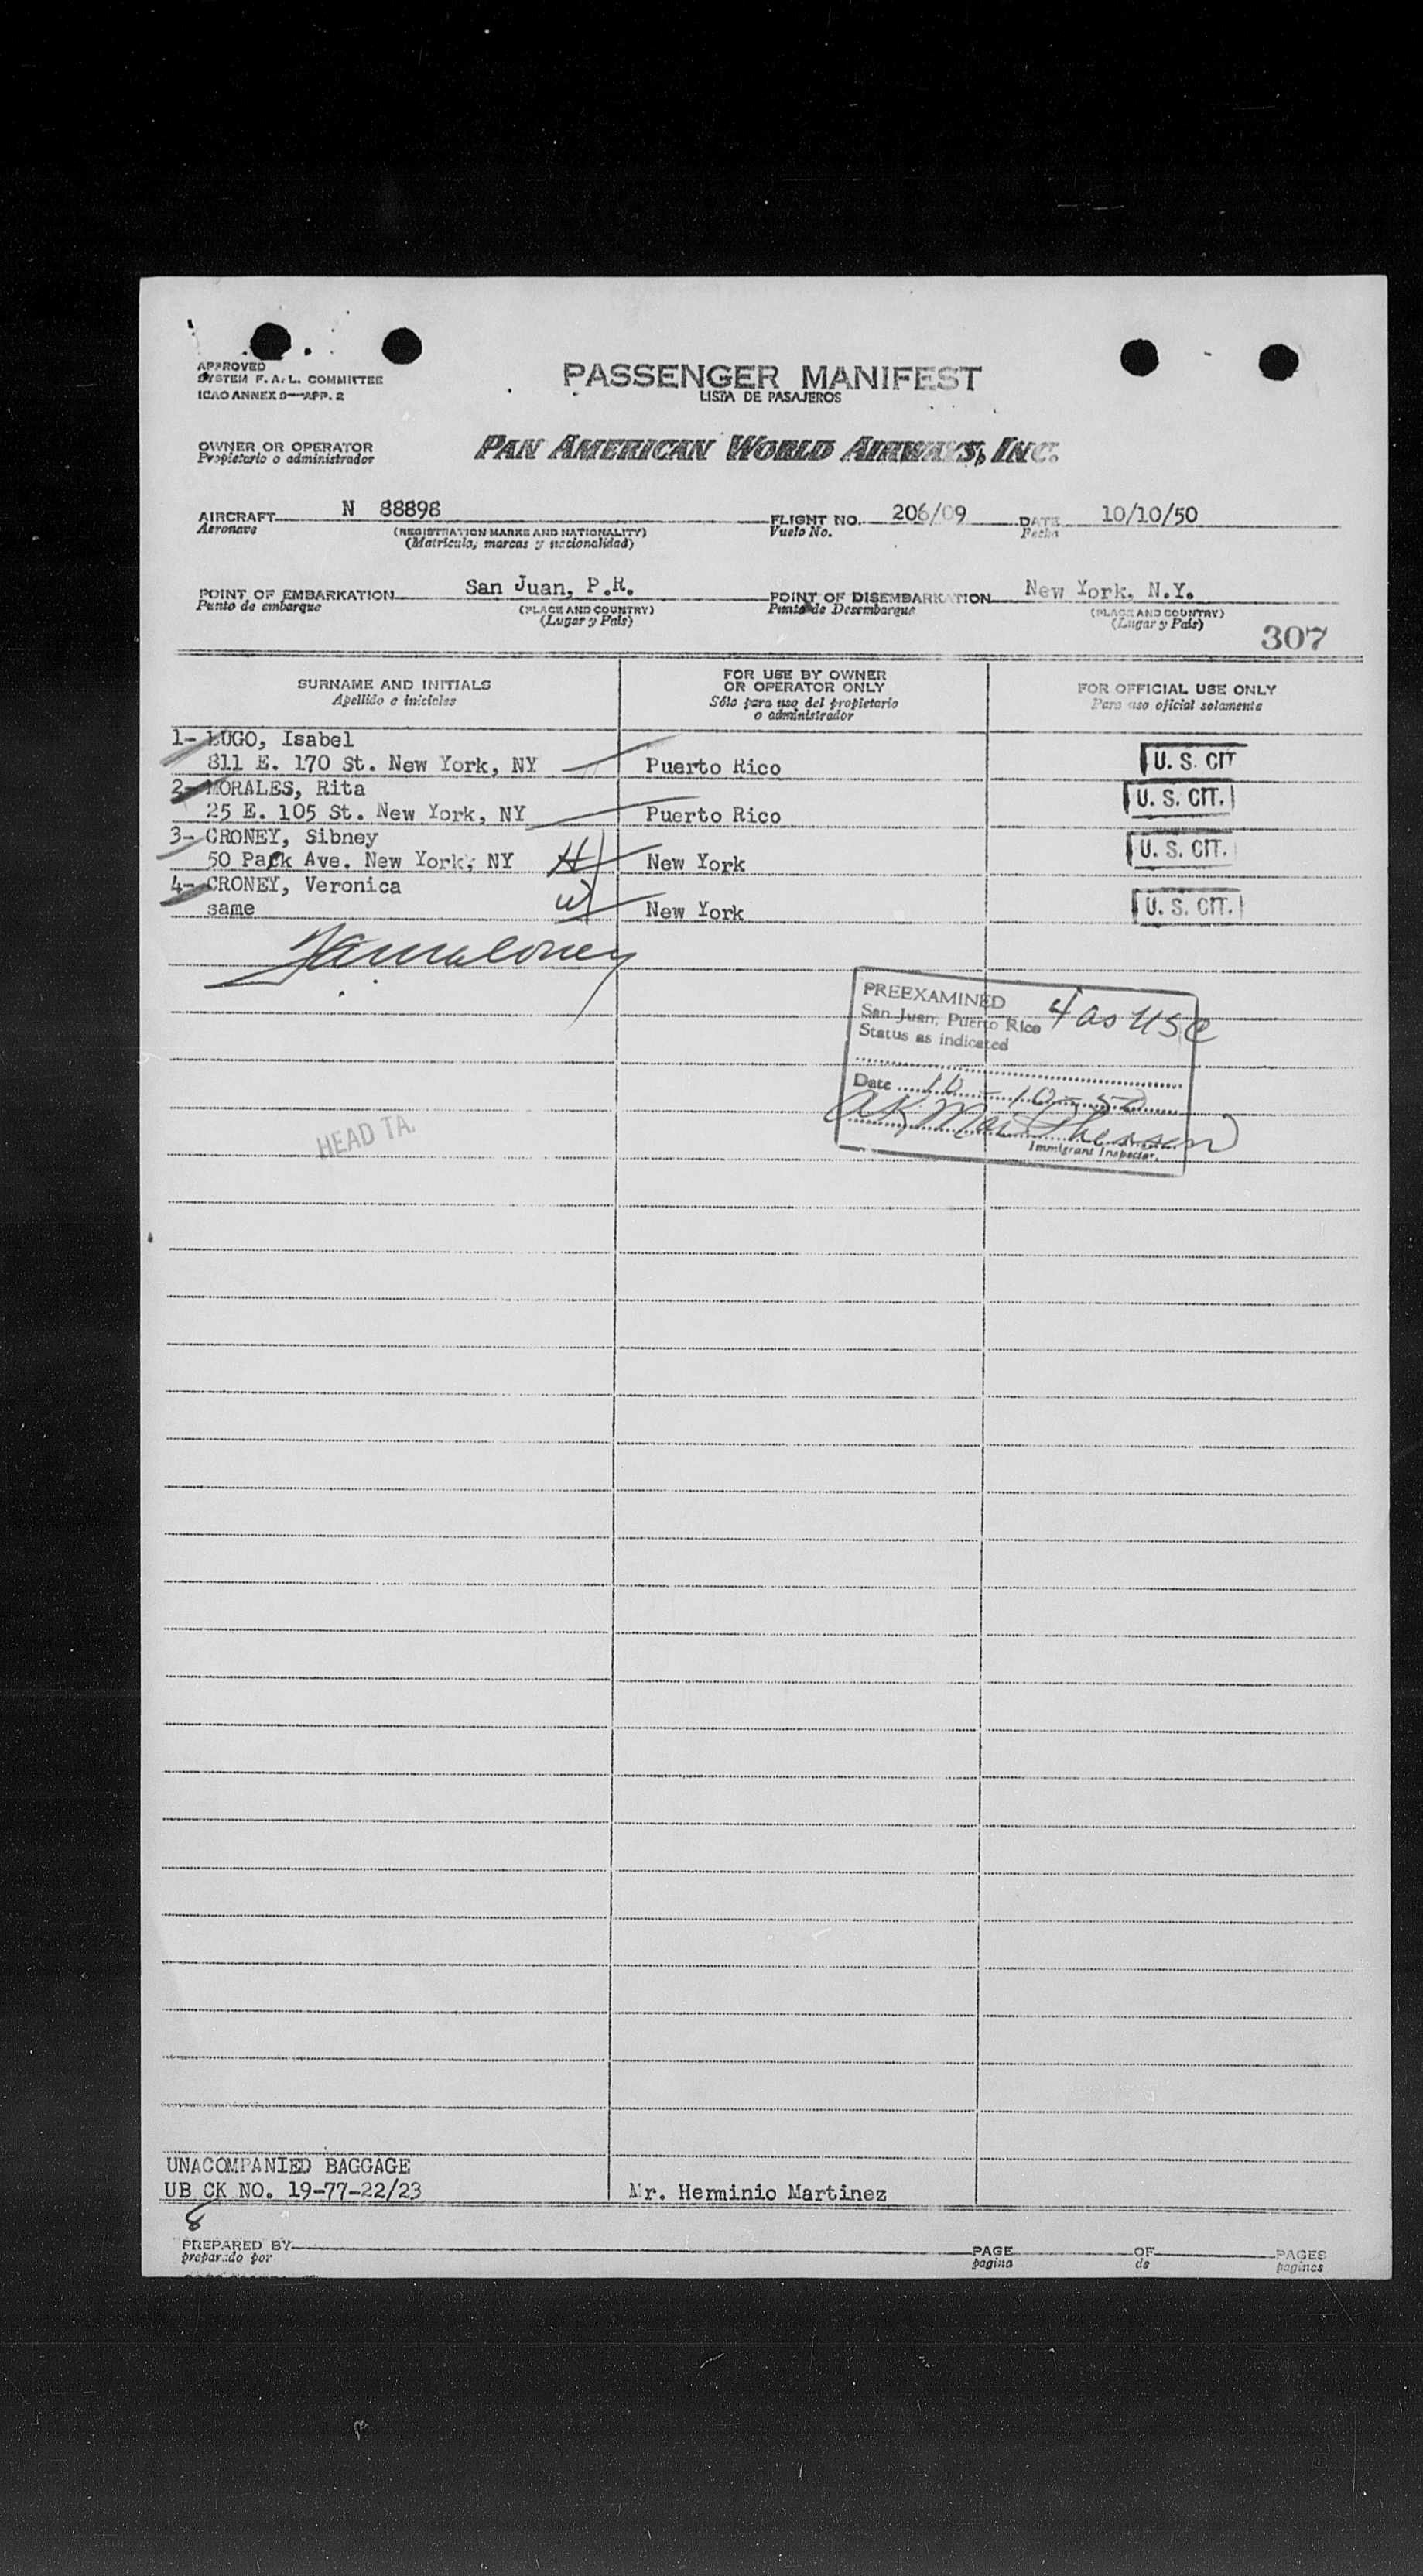 APPROVED
SYSTEM F. A. L. COMMITTEE
ICAO ANNEX 9—APP. 2
PASSENGER MANIFEST
LISTA DE PASAJEROS
OWNER OR OPERATOR
Propietario o administrador
PAN AMERICAN WORLD AIRWAYS, INC.
AIRCRAFT N 88898 FLIGHT NO. 206/09 DATE 10/10/50
Aeronave (REGISTRATION MARKS AND NATIONALITY) Vuelo No. Fecha
(Matricula, marcas y nacionalidad)
POINT OF EMBARKATION San Juan, P.R. POINT OF DISEMBARKATION New York, N.Y.
Punto de embarque (PLACE AND COUNTRY) Punto de Desembarque (PLACE AND COUNTRY)
(Lugar y País) (Lugar y País)
307
SURNAME AND INITIALS
Apellido e iniciales
FOR USE BY OWNER
OR OPERATOR ONLY
Sólo para uso del propietario
o administrador
FOR OFFICIAL USE ONLY
Para uso oficial solamente
1- LUGO, Isabel
811 E. 170 St. New York, NY Puerto Rico U. S. CIT
2- MORALES, Rita
25 E. 105 St. New York, NY Puerto Rico U. S. CIT.
3- CRONEY, Sibney
50 Park Ave. New York, NY H New York U. S. CIT.
4- CRONEY, Veronica
same W New York U. S. CIT.
PREEXAMINED
San Juan, Puerto Rico 4 as USC
Status as indicated
Date 10-10-50
Immigrant Inspector.
HEAD TA.
UNACOMPANIED BAGGAGE
UB CK NO. 19-77-22/23 Mr. Herminio Martinez
8
PREPARED BY PAGE OF PAGES
preparado por pagina de pagines